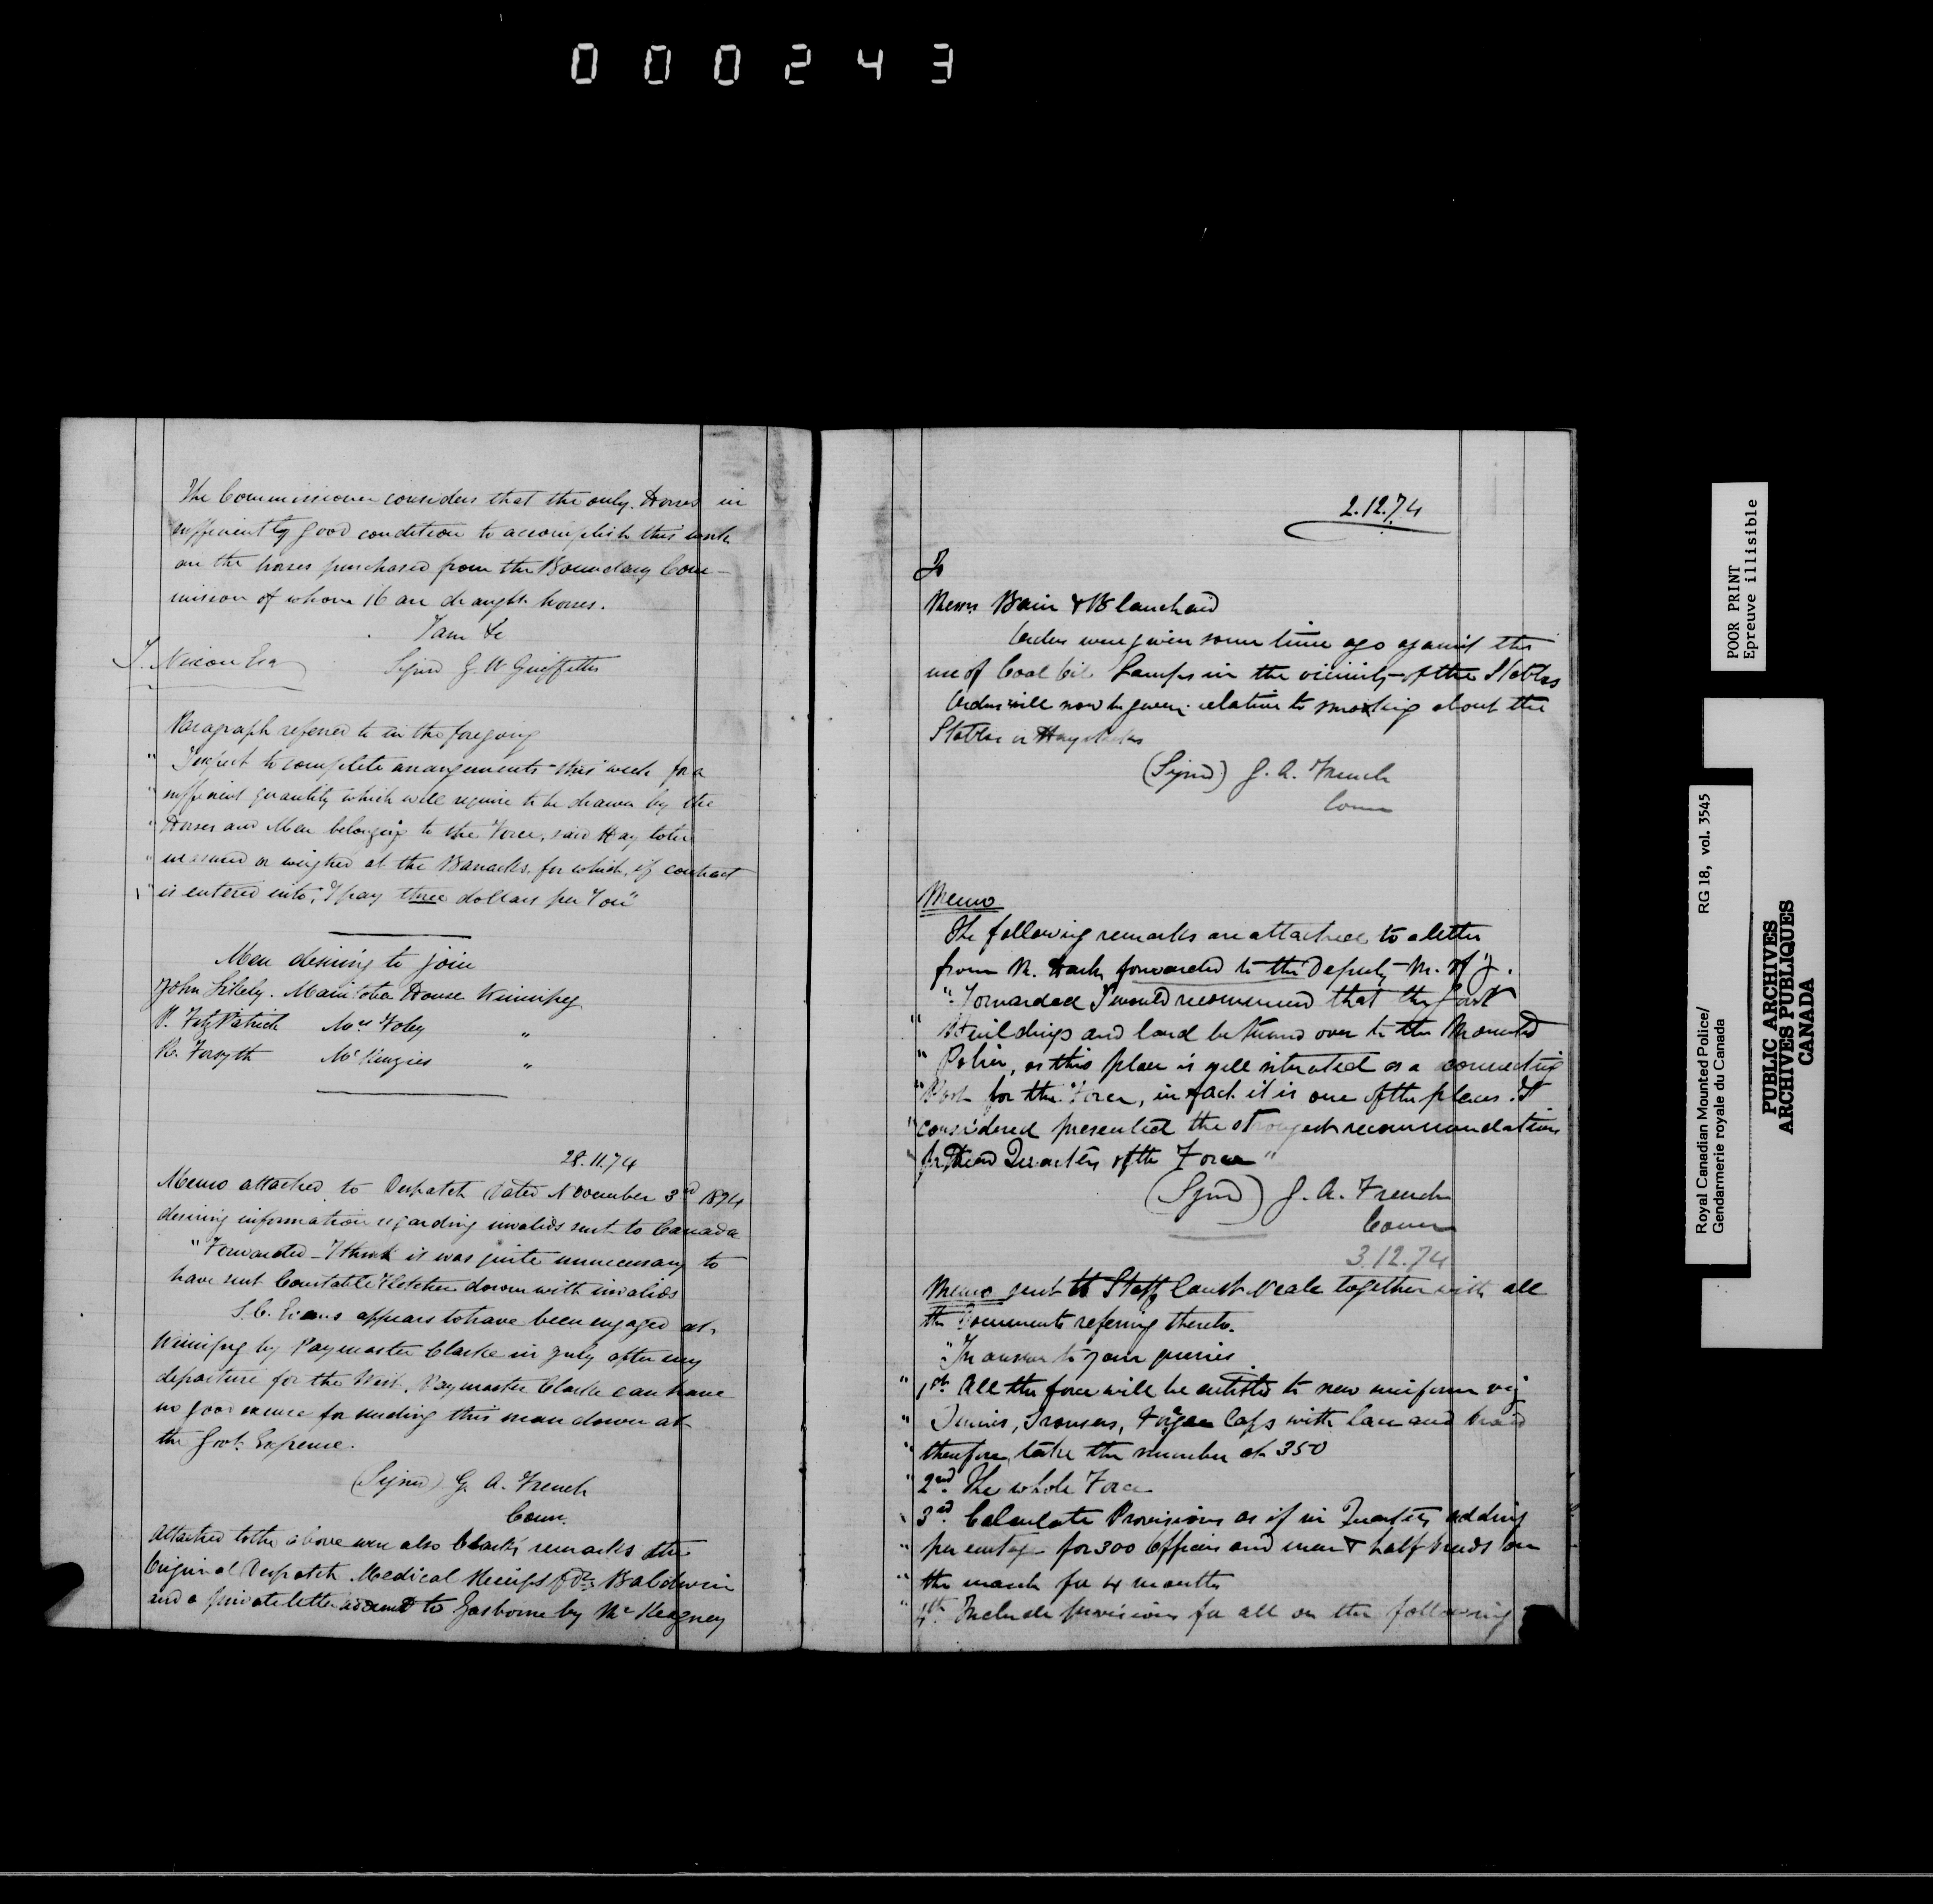 000243
The Commissioner considers that the only Horses in
sufficiently good condition to accomplish this work
are the horses purchased from the Boundary Com-
mission of whom 16 are draught horses.
I am &c
T. Nixon Esq Signed J. W Griffiths
Paragraph referred to in the foregoing
" I expect to complete arrangements this week for a
" sufficient quantity which will require to be drawn by the
" Horses and Men belonging to the Force, said Hay to be
" measured or weighed at the Barracks for which, if contract
" is entered into, I pay three dollars per Ton"
Men desiring to join
John Likely. Manitoba House Winnipeg
P. FitzPatrick Mrs Foley "
R. Forsyth McKenzies "
28.11.74
Memo attached to Despatch dated November 3rd 1874
desiring information regarding invalids sent to Canada
"Forwarded - I think it was quite unnecessary to
have sent Constable Fletcher down with invalids
S.C. Evans appears to have been engaged at
Winnipeg by Paymaster Clarke in July after my
departure for the West. Paymaster Clarke can have
no good excuse for sending this man down at
the Govt. Expense.
(Signed) G. A. French
Comr.
Attached to the above were also Clark's remarks the
Original Despatch. Medical Receipts Baldwin
and a private letter to Gasborne by Mr Keagney
2.12.74
To
Messrs Bain & Blanchard
Orders were given some time ago against the
use of Coal Oil Lamps in the vicinity of the Stables
Orders will now be given relative to smoking about the
Stables or Haystacks
(Signed) G. A. French
Comr
Memo
The following remarks are attached to a letter
from M. forwarded to the Deputy M. of J.
"Forwarded I would recommend that the Govt
" Buildings and land be turned over to the Mounted
" Police, as this place is well situated as a connecting
" Post for the Force, in fact it is one of the places I
" considered presented the strongest recommendations
for Head Quarters of the Force"
(Signd) G. A. French
Comr
3.12.74
Memo sent to Staff Const. Neale together with all
the Documents refering thereto.
"In answer to your queries
" 1st All the force will be entitled to new uniform viz
" Tunics, Trousers, Forage Caps with lace and braid
" therefore take the number at 350
" 2nd The whole Force
" 3rd Calculate Provisions as if in Quarters adding
" percentage for 300 Officers and men & half breeds on
" the march for 4 months
" 4th Include provisions for all on the following
POOR PRINT
Epreuve illisible
Royal Canadian Mounted Police/ RG 18, vol. 3545
Gendarmerie royale du Canada
PUBLIC ARCHIVES
ARCHIVES PUBLIQUES
CANADA